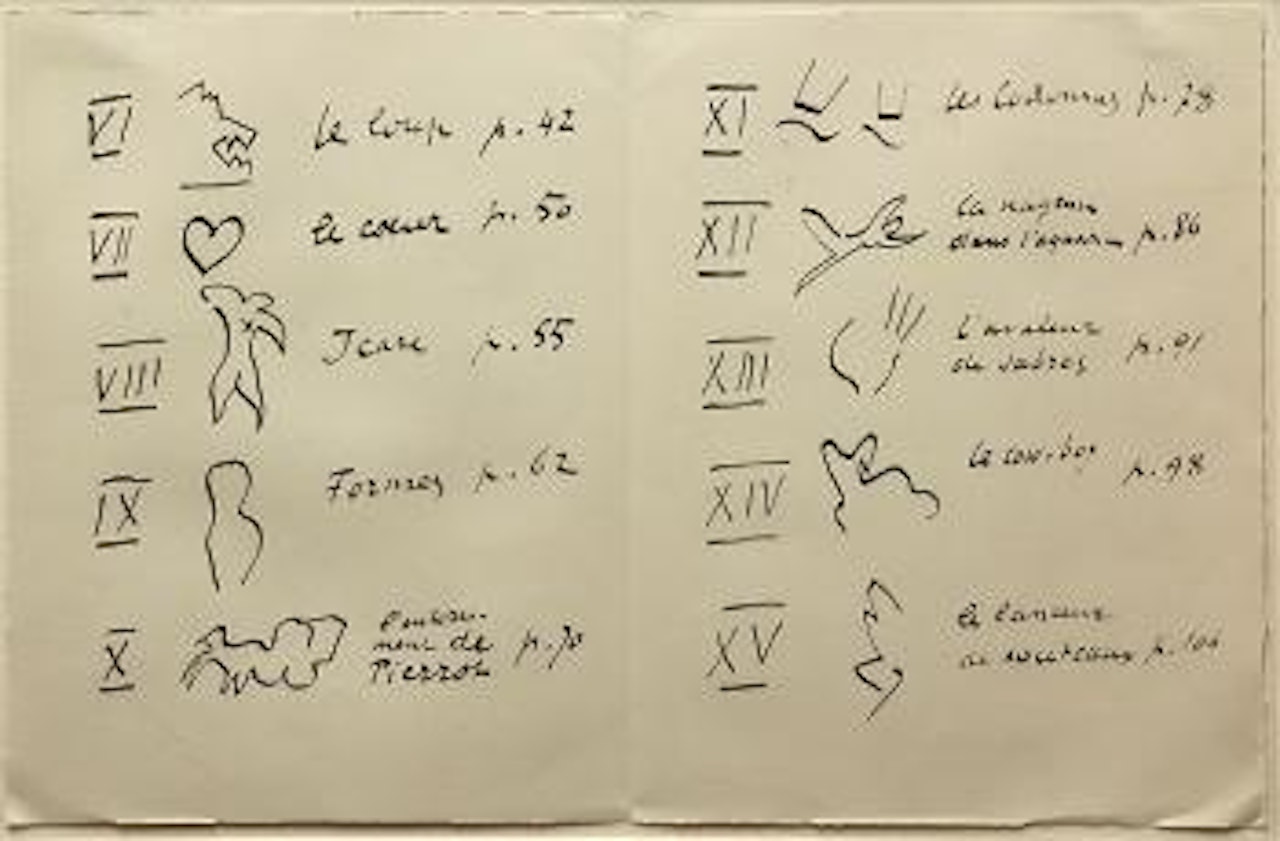 VI le loup p. 42
VII le cœur p. 50
VIII Icare p. 55
IX Formes p. 62
X l'enterre-
ment de
Pierrot p. 70
XI les Codomas p. 78
XII la nageuse
dans l'aquarium p. 86
XIII l'avaleur
de sabres p. 91
XIV le cow-boy p. 98
XV le lanceur
de couteaux p. 100